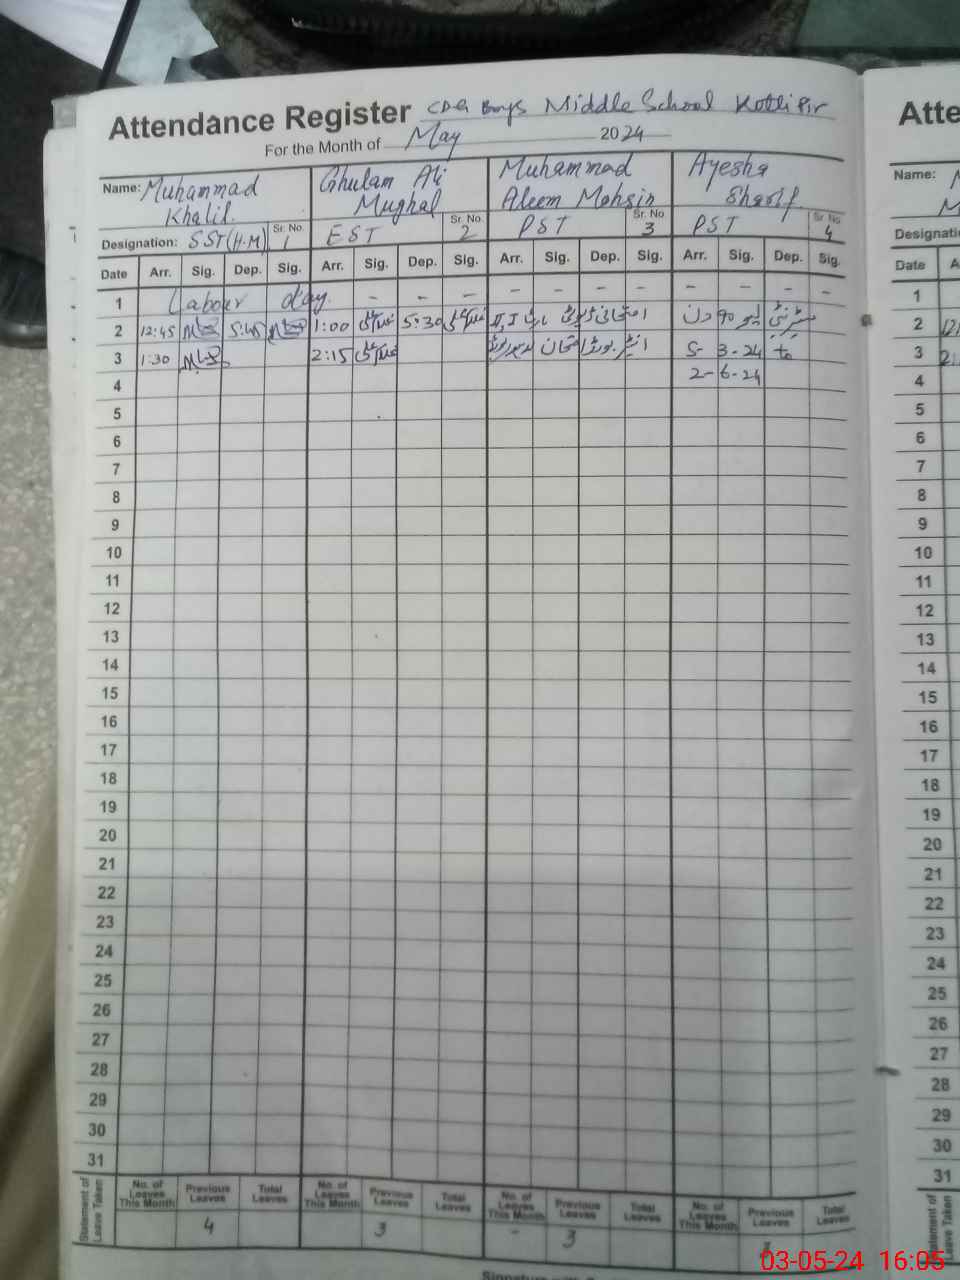 Attendance Register CDG Boys Middle School Kotli Pir
For the Month of May 2024
Name: Muhammad Khalil Ghulam Ali Mughal Muhammad Aleem Mohsin Ayesha Sharif
Designation: SST(H.M) Sr. No. 1 EST Sr. No. 2 PST Sr. No. 3 PST Sr. No. 4
Date Arr. Sig. Dep. Sig. Arr. Sig. Dep. Sig. Arr. Sig. Dep. Sig. Arr. Sig. Dep. Sig.
1 Labour day. - - - - - - - - - - - -
2 12:45 5:45 1:00 5:30 امتحانی ڈیوٹی پارٹ I, II میٹرنٹی لیو ۹۰ دن
3 1:30 2:15 انٹر بورڈ امتحان 5-3-24 to
4 2-6-24
5
6
7
8
9
10
11
12
13
14
15
16
17
18
19
20
21
22
23
24
25
26
27
28
29
30
31
Statement of Leave Taken
No. of Leaves This Month Previous Leaves Total Leaves No. of Leaves This Month Previous Leaves Total Leaves No. of Leaves This Month Previous Leaves Total Leaves No. of Leaves This Month Previous Leaves Total Leaves
4 3 - 3
Atte
Name:
Designati
Date A
1
2
3
4
5
6
7
8
9
10
11
12
13
14
15
16
17
18
19
20
21
22
23
24
25
26
27
28
29
30
31
Statement of Leave Taken
03-05-24 16:05